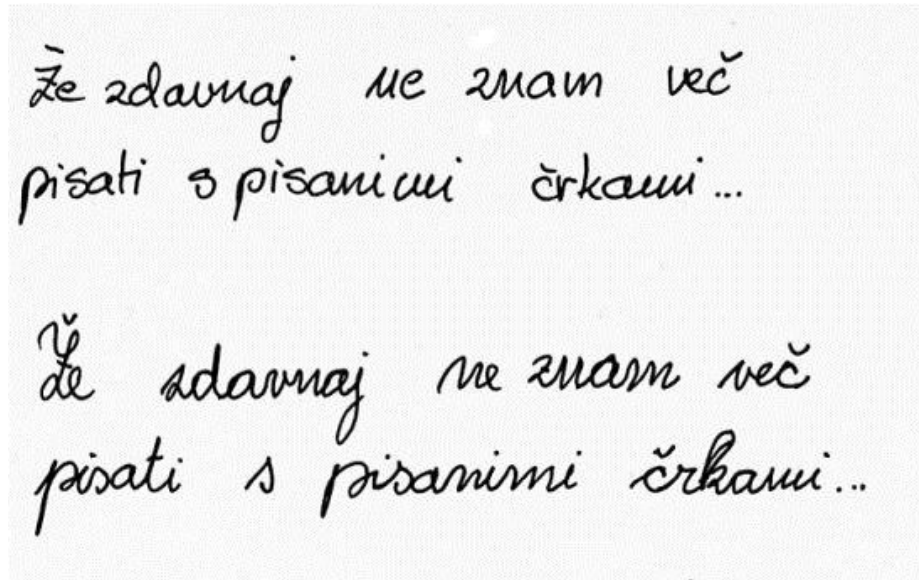 Že zdavnaj ne znam več
pisati s pisanimi črkami...
Že zdavnaj ne znam več
pisati s pisanimi črkami...